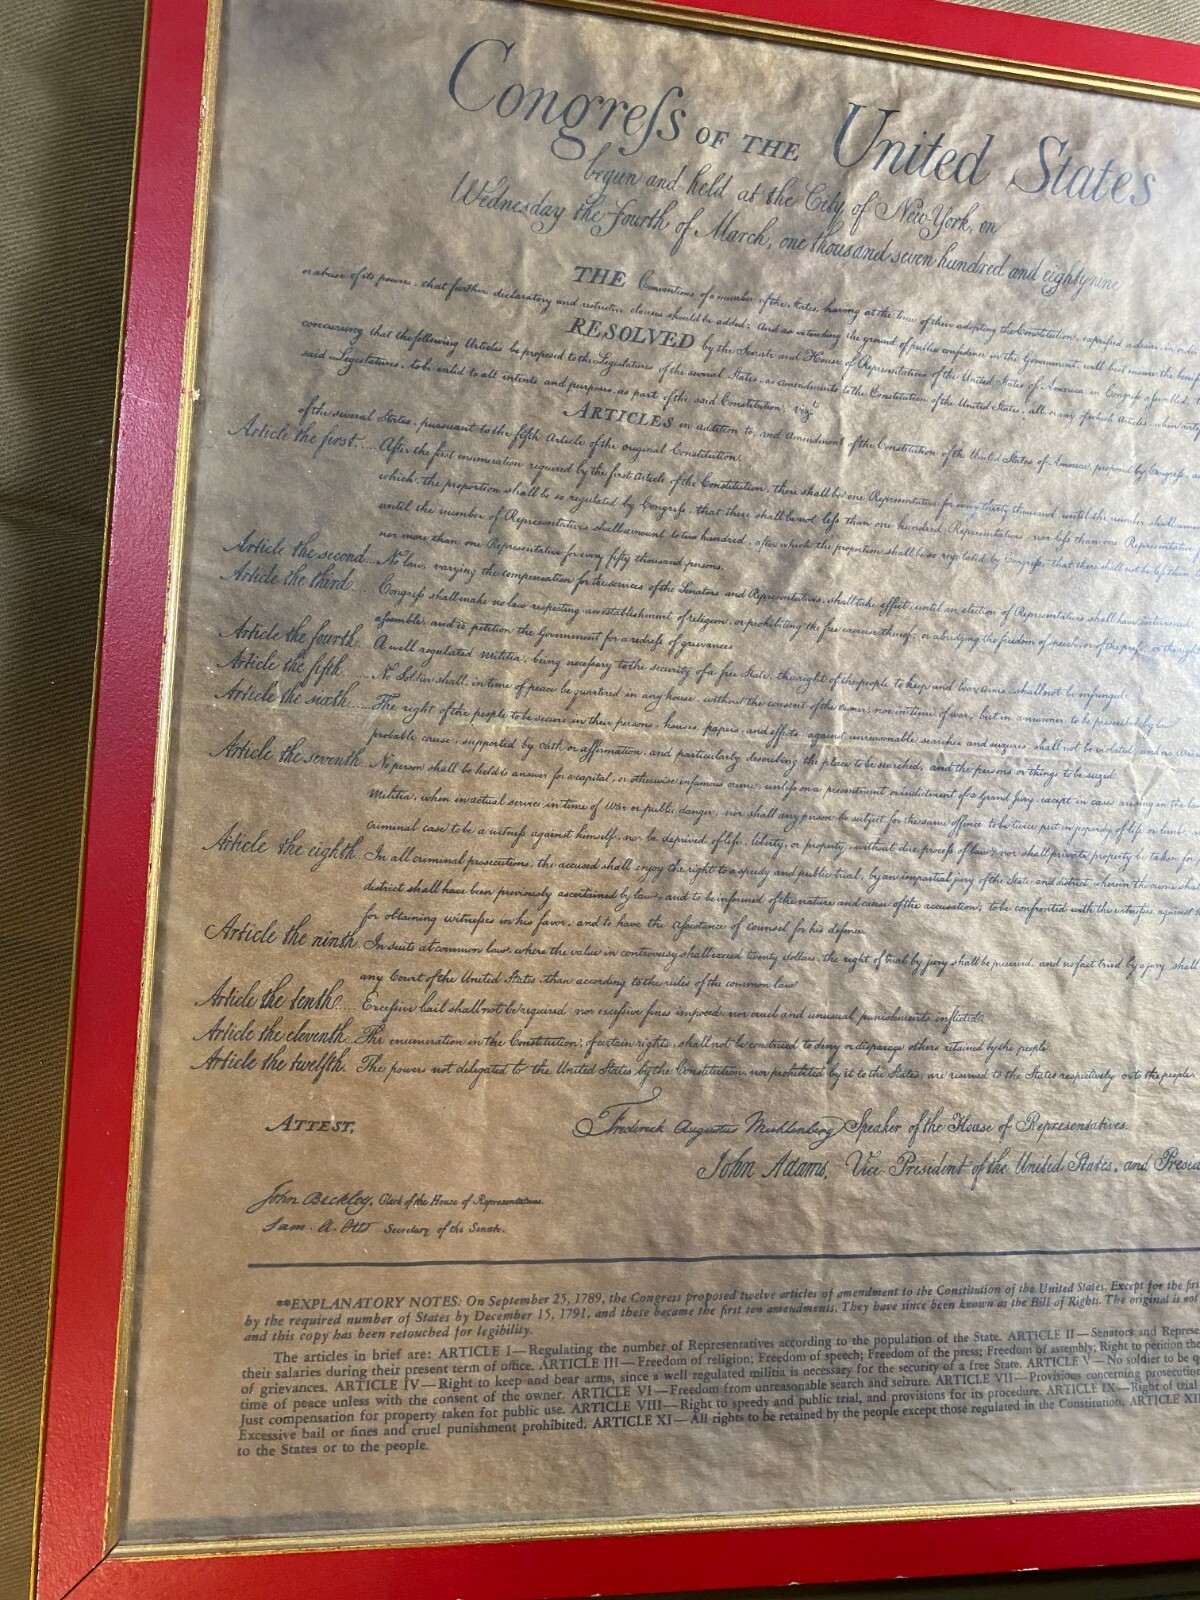 Congreſs OF THE United States
begun and held at the City of New-York, on
Wednesday the fourth of March, one thousand seven hundred and eighty nine
THE Conventions of a number of the States, having at the time of their adopting the Constitution, expressed a desire, in order
or abuse of its powers, that further declaratory and restrictive clauses should be added: And as extending the ground of public confidence in the Government, will best ensure the
RESOLVED by the Senate and House of Representatives of the United States of America, in Congreſs aſsembled,
concurring that the following Articles be proposed to the Legislatures of the several States, as amendments to the Constitution of the United States, all, or any of which Articles, when
said Legislatures, to be valid to all intents and purposes, as part of the said Constitution; vizt
ARTICLES in addition to, and Amendment of the Constitution of the United States of America, proposed by Congreſs,
of the several States, pursuant to the fifth Article of the original Constitution.
Article the first..... After the first enumeration required by the first Article of the Constitution, there shall be one Representative for every thirty thousand, until the number shall
which, the proportion shall be so regulated by Congreſs, that there shall be not leſs than one hundred Representatives, nor leſs than one Representative
until the number of Representatives shall amount to two hundred, after which the proportion shall be so regulated by Congreſs, that there shall not be leſs than
nor more than one Representative for every fifty thousand persons.
Article the second... No law, varying the compensation for the services of the Senators and Representatives, shall take effect, until an election of Representatives shall have intervened.
Article the third.... Congreſs shall make no law respecting an establishment of religion, or prohibiting the free exercise thereof; or abridging the freedom of speech, or of the preſs; or the right
aſsemble, and to petition the Government for a redreſs of grievances
Article the fourth. A well regulated Militia, being necessary to the security of a free State, the right of the people to keep and bear arms, shall not be infringed.
Article the fifth ..... No Soldier shall, in time of peace be quartered in any house, without the consent of the owner, nor in time of war, but in a manner to be prescribed by law
Article the sixth..... The right of the people to be secure in their persons, houses, papers, and effects, against unreasonable searches and seizures, shall not be violated, and no
probable cause, supported by oath or affirmation, and particularly describing the place to be searched, and the persons or things to be seized.
Article the seventh. No person shall be held to answer for a capital, or otherwise infamous crime, unleſs on a presentment or indictment of a Grand Jury, except in cases arising in the
Militia, when in actual service in time of War or public danger; nor shall any person be subject for the same offence to be twice put in jeopardy of life or limb,
criminal case to be a witneſs against himself, nor be deprived of life, liberty, or property, without due proceſs of law; nor shall private property be taken for
Article the eighth.. In all criminal prosecutions, the accused shall enjoy the right to a speedy and public trial, by an impartial jury of the State and district wherein the crime shall
district shall have been previously ascertained by law, and to be informed of the nature and cause of the accusation; to be confronted with the witneſses against
for obtaining witneſses in his favor, and to have the Aſsistance of counsel for his defence
Article the ninth.. In suits at common law, where the value in controversy shall exceed twenty dollars, the right of trial by jury shall be preserved, and no fact tried by a jury shall
any Court of the United States, than according to the rules of the common law
Article the tenth..... Exceſsive bail shall not be required nor exceſsive fines imposed, nor cruel and unusual punishments inflicted.
Article the eleventh.. The enumeration in the Constitution, of certain rights, shall not be construed to deny or disparage others retained by the people.
Article the twelfth. The powers not delegated to the United States by the Constitution, nor prohibited by it to the States, are reserved to the States respectively or to the people
ATTEST,
Frederick Augustus Muhlenberg Speaker of the House of Representatives.
John Adams, Vice President of the United States, and
John Beckley, Clerk of the House of Representatives.
Sam. A. Otis Secretary of the Senate.
**EXPLANATORY NOTES: On September 25, 1789, the Congress proposed twelve articles of amendment to the Constitution of the United States. Except for the
by the required number of States by December 15, 1791, and these became the first ten amendments. They have since been known as the Bill of Rights. The original is not
and this copy has been retouched for legibility.
The articles in brief are: ARTICLE I—Regulating the number of Representatives according to the population of the State. ARTICLE II—Senators and
their salaries during their present term of office. ARTICLE III—Freedom of religion; Freedom of speech; Freedom of the press; Freedom of assembly; Right to petition the
of grievances. ARTICLE IV—Right to keep and bear arms, since a well regulated militia is necessary for the security of a free State. ARTICLE V—No soldier to be
time of peace unless with the consent of the owner. ARTICLE VI—Freedom from unreasonable search and seizure. ARTICLE VII—Provisions concerning prosecution
Just compensation for property taken for public use. ARTICLE VIII—Right to speedy and public trial, and provisions for its procedure. ARTICLE IX—Right of trial
Excessive bail or fines and cruel punishment prohibited. ARTICLE XI—All rights to be retained by the people except those regulated in the Constitution. ARTICLE XII
to the States or to the people.